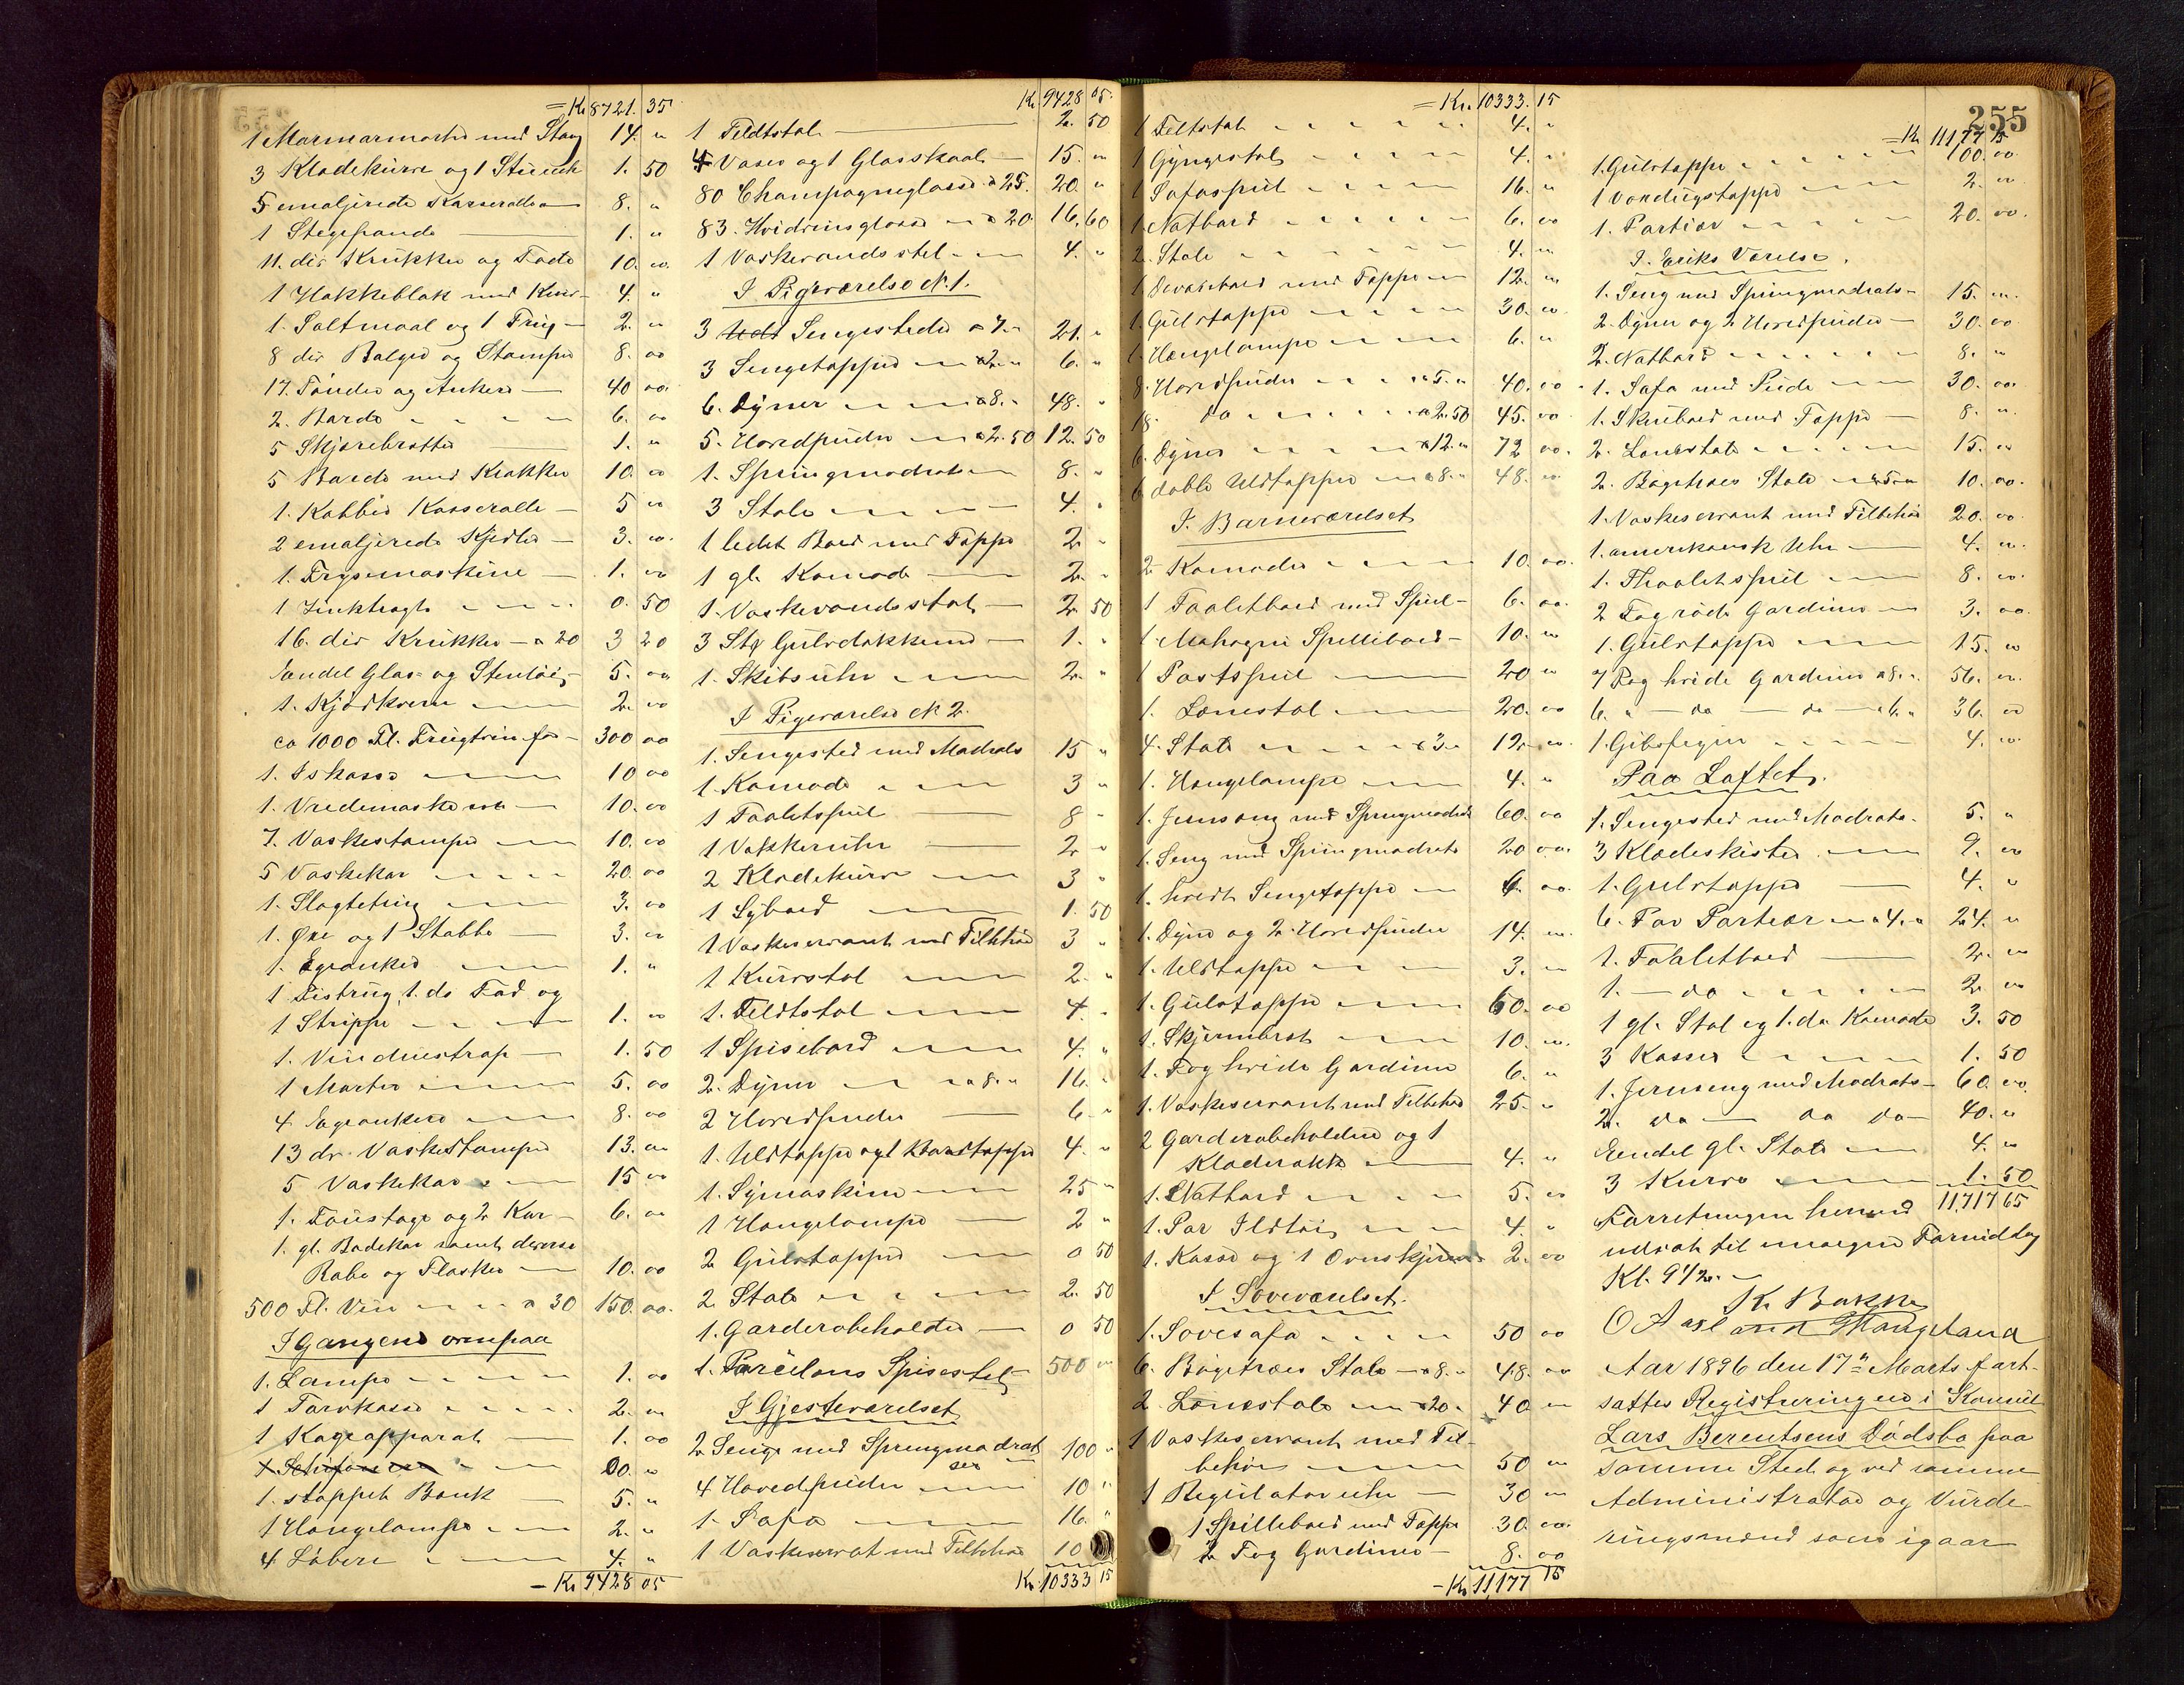 = Kr 8721. 35
1 Marmormorter med Stang 14. "
3 Klædekurve og 1 Stuuch 1. 50
5 emaljerede Kasseroller 8. "
1 Stegepande 1. "
11. div Krukker og Fade 10. oo.
1 Hakkeblok med Kniv 4. "
1. Saltmaal og 1 Trug 2. "
8 div Balger og Stamper 8. oo
17. Tønder og Ankere 40 oo.
2. Borde 6. oo
5 Skjærebrætter 1. "
5 Borde med Krakker 10. oo
1. Kobber Kasserolle 5 oo
2 emaljerede Kjedler 3. oo.
1. Frysemaskine 1. oo
1 Zinktragt 0. 50
16. div Krukker a 20 3 20
Endel Glas- og Stentøi 5. oo
1. Kjødkværn 2. oo
ca 1000 Fl. Frugtvin for 300 oo
1. Iskasse 10 oo
1. Vredemaskine 10. oo
7. Vaskestamper 10. oo
5 Vaskekar 20. oo
1. Slagtetrug 3. oo
1. Øxe og 1 Stabbe 3. oo
1. Egeanker 1. "
1 Distrug, 1. do Fad og
1 Strippe 1. oo
1. Vinduestrap 1. 50
1 Morter 5. oo
4 Egeankere 8. oo
13 dv. Vaskestamper 13. oo
5 Vaskekar 15 oo
1. Foustage og 2 Kar 6. oo
1. gl. Badekar samt diverse
Rabe og Flasker 10. oo
500 Fl. Vin a 30 150. oo.
I Gangene ovenpaa
1. Lampe 1. oo
1 Tarvkasse 2. oo
1 Kogeapparat 1. oo
1 Schifoniere 00. "
1. stoppet Bænk 5. "
1 Hængelampe 2. "
4 Løbere 4. "
- Kr 9428 05
Kr. 9428 05.
1 Feldtstol 2. 50
4 Vaser og 1 Glasskaal 15. "
80 Champagneglasse a 25. 20. "
83. Hvidvinsglasse a 20 16. 60
1 Vaskevandsstel 4. "
I Pigeværelse N. 1.
3 Sengesteder a 7. 21. "
3 Sengetæpper a 2. 6. "
6. Dyner a 8. 48. "
5. Hovedpuder a 2.50 12. 50
1. Springmadrats 8. "
3 Stole 4. "
1 ledet Bord med Tæppe 2. "
1 gl. Komode 2. "
1. Vaskevandsstol 2. 50
3 Stk Gulvdækkener 1. "
1. Skibsuhr 2. "
I Pigeværelse N 2.
1. Sengested med Madrats 15 "
1. Komode 3 "
1 Toaletspeil 8 "
1 Vækkeruhr 2 "
2 Klædekurve 3 "
1 Sybord 1. 50
1 Vaskeservant med Tilbehør 3 "
1 Kurvstol 2. "
1. Feldtstol 4. "
1 Spisebord 4. "
2. Dyner a 8. 16. "
2 Hovedpuder 6. "
1. Uldtæppe og 1 Bordtæppe 4. "
1. Symaskine 25 "
1 Hængelampe 2 "
2 Gulvtæpper 0 50
2. Stole 2. 50
1. Garderobeholder 0 50
1. Porcelæns Spisestel 500 oo
I Gjesteværelset
2 Senge med Springmadrat
ser 100 "
4 Hovedpuder 10 "
1. Sofa 16. "
1 Vaskeservant med Tilbehør 10
Kr. 10333 15
= Kr. 10333. 15
1 Feltstol 4. "
1 Gyngestol 4. "
1 Sofaspeil 16. "
1 Natbord 6. oo
2. Stole 4. "
1 Sovasebord med Tæppe 12. "
1. Gulvtæppe 30. oo
1. Hængelampe 6. "
8. Hovedpuder a 5. 40. oo
18. do a 2.50 45. oo
6. Dyner a 12. 72 oo.
6 doble Uldtæpper a 8. 48. oo
I. Barneværelset
2 Komoder 10. oo.
1 Toaletbord med Speil 6. oo.
1 Mahogni Spillebord 10. oo
1 Postspeil 20 "
1. Lænestol 20. oo
4. Stole a 3. 12. oo.
1. Hængelampe 4. "
1. Jernseng med Springmadrats 60. oo
1. Seng med Springmadrats 20 oo.
1. hvidt Sengetæppe 6. oo.
1. Dyne og 2. Hovedpuder 14. oo.
1. Uldtæppe 3. oo
1. Gulvtæppe 60. oo
1. Skjermbret 10. oo.
1. Fog hvide Gardiner 6. "
1. Vaskeservant med Tilbehør 25. "
2 Garderobeholdere og 1
Klæderække 4. "
1. Natbord 5. oo
1. Par Ildtøi 4. "
1. Kasse og 1 Ovnskjerm 2. oo
I Soveværelset.
1. Sovesofa 50 oo
6. Bøgetræes Stole a 8. 48. oo
2. Lænestole a 20. 40 "
1 Vaskeservant med Til-
behør 50 "
1 Regulatoruhr 30 "
1 Spillebord med Tæppe 30. oo.
2 Fog Gardiner 8. oo
- Kr 11,177 15
255
= Kr 11177 15
1. Gulvtæppe 100. oo.
1 Voxdugstæppe 2. "
1. Portier 20. oo.
I. Eriks Værelse.
1. Seng med Springmadrats 15. oo.
2. Dyner og 2 Hovedpuder 30. oo.
2. Natbord 8. "
1. Sofa med Pude 30. oo.
1. Skrivebord med Tæppe 8. "
2. Lænestole 15. oo
2. Bøgetræes Stole a 5 10. oo.
1. Vaskeservant med Tilbehør 20. oo.
1. amerikansk Uhr 4. oo.
1. Thoaletspeil 8. oo.
2 Fog røde Gardiner 3. oo.
1. Gulvtæppe 15. oo
7 Fog hvide Gardiner a 8. 56. oo.
6. " do do a 6. 36. oo
1. Gibsfigur 4. oo.
Paa Loftet.
1. Sengested med Madrats. 5. "
3 Klædeskister 9. oo
1. Gulvtæppe 4. "
6. Par Portier a 4. 24. "
1. Toaletbord 2. oo
1. do 2 oo
1 gl. Stol og 1. do Komode 3. 50
3 Kasser 1. 50
1. Jernseng med Madrats 60. oo.
2. do do do 40. "
Eendel gl. Stole 4. "
3 Kurve 1. 50
Forretningen herved 11717 65
udsat til imorgen Formiddag
Kl. 9 1/2.
K. Bakke
O A Axelsen Haugeland
Aar 1896 den 17de Marts fort-
sattes Registreringen i Konsul
Lars Berentsens Dødsbo paa
samme Sted og ved samme
Administrator og Vurde
ringsmænd som igaar